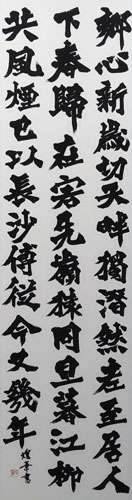 鄉心新歲切天畔獨潸然老至居人
下春歸在客先嶺猨同旦暮江柳
共風煙已似長沙傅從今又幾年